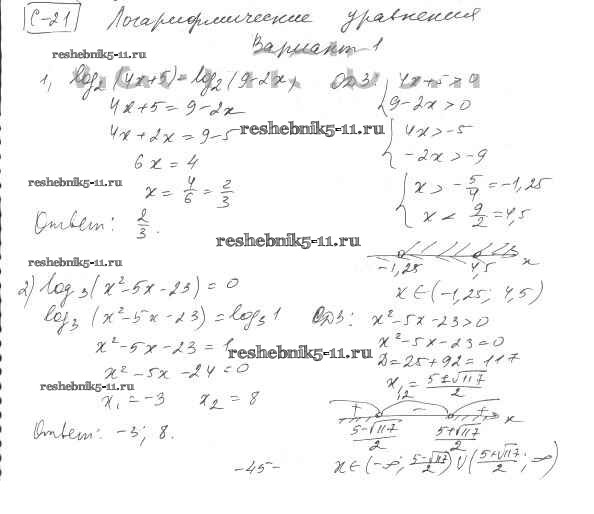 С-21 Логарифмические уравнения
reshebnik5-11.ru
Вариант 1
1, log₂(4x+5)=log₂(9-2x) ОДЗ: { 4x+5>0
4x+5=9-2x 9-2x>0
4x+2x=9-5 { 4x>-5
reshebnik5-11.ru
6x=4 -2x>-9
reshebnik5-11.ru
x=4/6=2/3 { x>-5/4=-1,25
Ответ: 2/3. x<9/2=4,5
reshebnik5-11.ru
reshebnik5-11.ru
-1,25 4,5 x
2) log₃(x²-5x-23)=0 x∈(-1,25; 4,5)
log₃(x²-5x-23)=log₃1 ОДЗ: x²-5x-23>0
x²-5x-23=1 x²-5x-23=0
reshebnik5-11.ru
x²-5x-24=0 D=25+92=117
reshebnik5-11.ru
x₁=-3 x₂=8 x₁,₂=5±√117/2
+ - + x
Ответ: -3; 8. 5-√117/2 5+√117/2
-45- x∈(-∞; 5-√117/2)∪(5+√117/2; ∞)